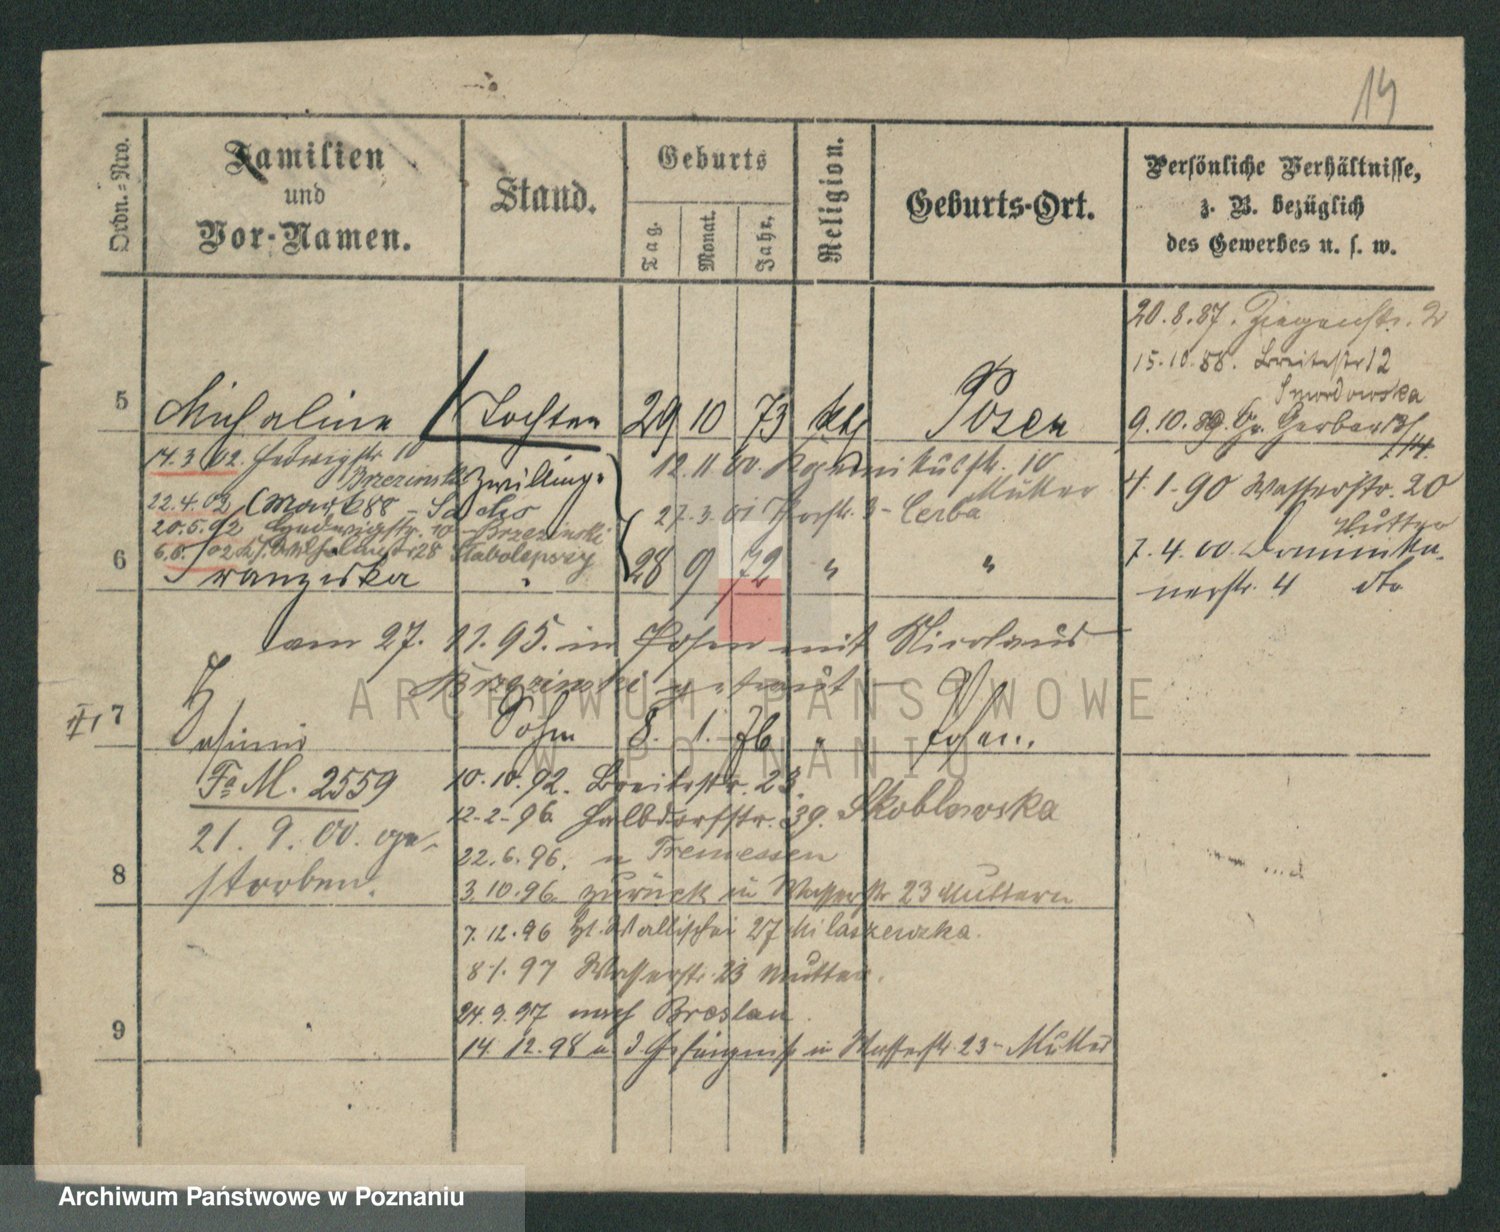 14
Ordn.-Nro.
Familien
und
Vor-Namen.
Stand.
Geburts
Tag.
Monat.
Jahr.
Religion.
Geburts-Ort.
Persönliche Verhältnisse,
z. B. bezüglich
des Gewerbes u. s. w.
20.8.87. Ziegenstr. 2
15.10.88. Breitestr 12
5 Michaline Tochter 29 10 73 kth Posen
9.10.89. Gr. Gerberstr
14.3.02. Hedwigstr 10
Brzezinski
Zwillinge
12.11.00. 10
Mutter
4.1.90 Wasserstr. 20
22.4.02 (Markt 88 - Sachs
27.3.01 3 - Cerba
20.5.02 Hedwigstr. 10 - Brzezinski
Mutter
7.4.00. Dominika-
nerstr. 4 dto
6.6.02 28 Stabolepszy
6 Franziska " 28 9 72 " "
am 27. 11. 95. in Posen mit Nicolaus
Brzezinski getraut
II/ 7 Casimir Sohn 8. 1. 76 " Posen.
Fa M. 2559
10.10.92. Breitestr. 23.
12-2-96 Halbdorfstr. 39. Skoblewska
21. 9. 00. ge-
storben.
22.6.96. n Tremessen
8
3.10.96. zurück in Wasserstr 23 Muttern
7.12.96 Wallischei 27 Milaszewska.
8/1.97 Wasserstr. 23 Mutter.
24.9.97 nach Breslau.
9
14.12.98 a d Gefängniss in Wasserstr. 23 - Mutter
ARCHIWUM PAŃSTWOWE
W POZNANIU
Archiwum Państwowe w Poznaniu